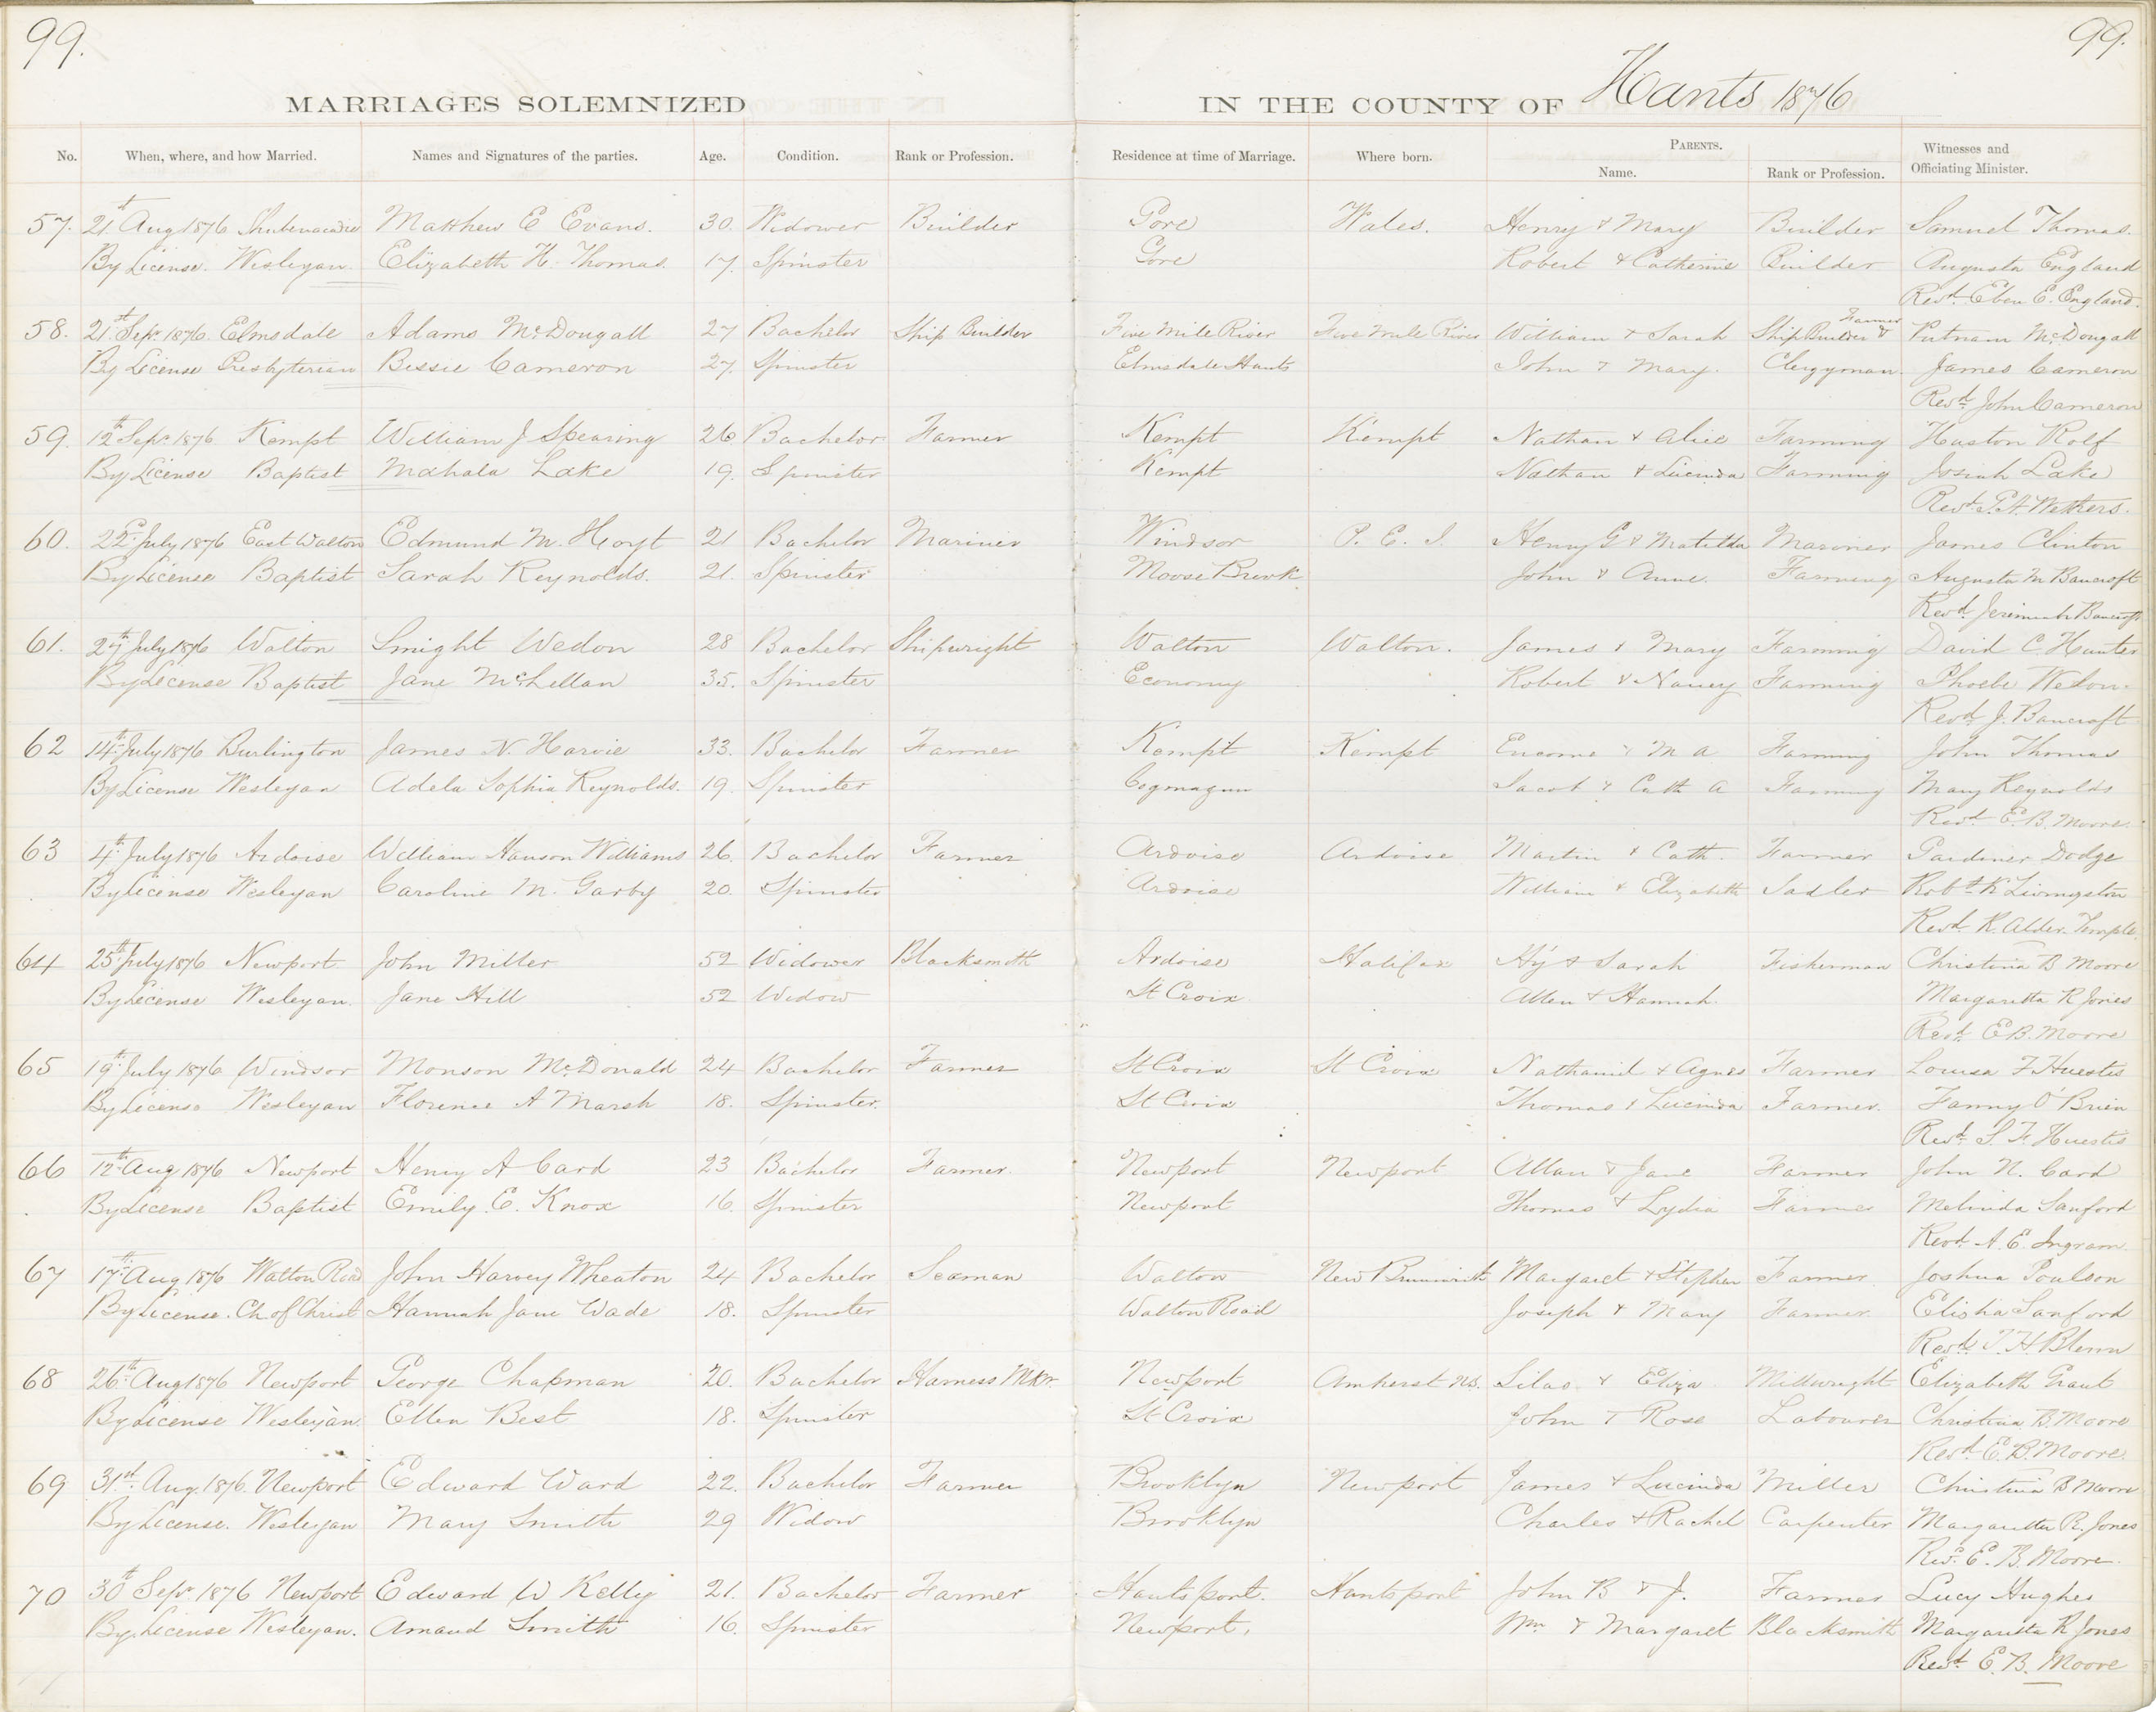 99. 99.
MARRIAGES SOLEMNIZED IN THE COUNTY OF Hants 1876
No. When, where, and how Married. Names and Signatures of the parties. Age. Condition. Rank or Profession. Residence at time of Marriage. Where born. PARENTS. Name. Rank or Profession. Witnesses and Officiating Minister.
57. 21st Aug 1876 Shubenacadie Matthew E Evans. 30. Widower Builder Gore Wales. Henry & Mary Builder Samuel Thomas.
By License. Wesleyan Elizabeth H. Thomas. 17. Spinster Gore Robert & Catherine Builder Augusta England
Revd. Eben E. England.
58. 21st Sepr 1876. Elmsdale Adams McDougall 27 Bachelor Ship Builder Five Mile River Five Mile River William & Sarah Ship Builder & Farmer Putnam McDougall
By License Presbyterian Bessie Cameron 27. Spinster Elmsdale Hants John & Mary. Clergyman James Cameron
Revd. John Cameron
59. 12th Sepr 1876 Kempt William J Spearing 26 Bachelor Farmer Kempt Kempt Nathan & Alice Farming Huston Rolf
By License Baptist Mahala Lake 19. Spinster Kempt Nathan & Lucinda Farming Josiah Lake
Revd.
60. 22d. July 1876 East Walton Edmund M. Hoyt 21 Bachelor Mariner Windsor P. E. I. Henry G & Matilda Mariner James Clinton
By License Baptist Sarah Reynolds. 21. Spinster Moose Brook John & Anne. Farming Augusta M Bancroft
Revd. Jeremiah Bancroft
61. 27th July 1876 Walton Smight Wedon 28 Bachelor Shipwright Walton Walton. James & Mary Farming David C. Hunter
By License Baptist Jane McLellan 35. Spinster Economy Robert & Nancy Farming Phoebe Wedon.
Revd. J. Bancroft
62 14th July 1876 Burlington James N. Harvie 33. Bachelor Farmer Kempt Kempt & M A Farming John Thomas
By License Wesleyan Adela Sophia Reynolds. 19. Spinster Cogmagun Jacob & Cath A Farming Mary Reynolds
Revd. E. B. Moore.
63 4th July 1876 Ardoise William Hanson Williams 26. Bachelor Farmer Ardoise Ardoise Martin & Cath. Farmer Gardiner Dodge
By License Wesleyan Caroline M. Garby 20. Spinster Ardoise William & Elizabeth Sadler Robt. K. Livingston
Revd. R. Alder Temple.
64 25th July 1876 Newport. John Miller 52 Widower Blacksmith Ardoise Halifax Hy & Sarah Fisherman Christina B Moore
By License Wesleyan. Jane Hill 52 Widow St Croix Allen & Hannah Margaretta R Jones
Revd. E. B. Moore
65 19th July 1876 Windsor Monson McDonald 24 Bachelor Farmer St Croix St Croix Nathaniel & Agnes Farmer Louisa F Huestis
By License Wesleyan Florence A Marsh 18. Spinster. St Croix Thomas & Lucinda Farmer. Fanny O'Brien
Revd. S. F. Huestis
66 12th Aug 1876 Newport Henry A Card 23 Bachelor Farmer. Newport Newport Allan & Jane Farmer John N. Card
By License Baptist Emily. E. Knox 16. Spinster Newport Thomas & Lydia Farmer Melinda Sanford
Revd. A. E. Ingram
67 17th Aug 1876 Walton Road John Harvey Wheaton 24 Bachelor Seaman Walton New Brunswick Margaret & Stephen Farmer. Joshua Poulson
By License. Ch. of Christ Hannah Jane Wade 18. Spinster Walton Road Joseph & Mary Farmer. Elisha Sanford
Revd. T. H. Blenn
68 26th Aug 1876 Newport George Chapman 20. Bachelor Harness Mkr. Newport Amherst NS. Silas & Eliza Millwright Elizabeth Grant
By License Wesleyan. Ellen Best 18. Spinster St Croix John & Rose Labourer Christina B. Moore
Revd. E. B. Moore.
69 31st. Aug. 1876. Newport Edward Ward 22. Bachelor Farmer Brooklyn Newport James & Lucinda Miller Christina B Moore
By License. Wesleyan Mary Smith 29 Widow Brooklyn Charles & Rachel Carpenter Margaretta R. Jones
Revd. E. B. Moore.
70 30th Sepr 1876 Newport Edward W Kelly 21. Bachelor Farmer Hantsport. Hantsport John B & J. Farmer Lucy Hughes
By License Wesleyan. Amaud Smith 16. Spinster Newport. Wm & Margaret Blacksmith Margaretta R Jones
Revd. E. B. Moore